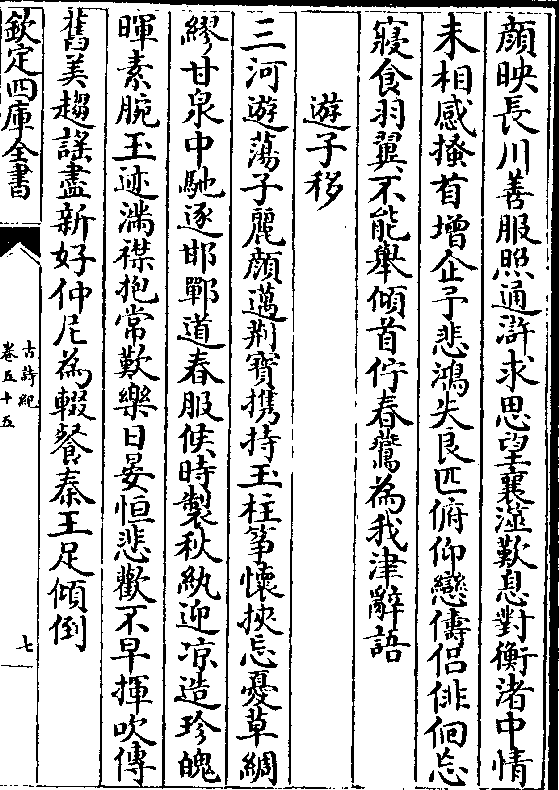 顔映長川善服照通滸求思望襄澨歎息對衡渚中情
未相感搔首增企予悲鴻失良匹俯仰戀儔侣俳佪忘
寢食羽翼不能舉傾首佇春鷰為我津辭語
遊子移
三河遊蕩子麗顔邁荆寶擕持玉柱筝懷挾忘憂草綢
繆甘泉中馳逐邯鄲道春服候時製秋紈迎凉造珍魄
暉素腕玉迹滿襟抱常歎樂日晏恒悲歡不早揮吹傳
舊美趨謡盡新好仲尼為輟餐秦王足傾倒
欽定四庫全書
古詩紀
卷五十五
七